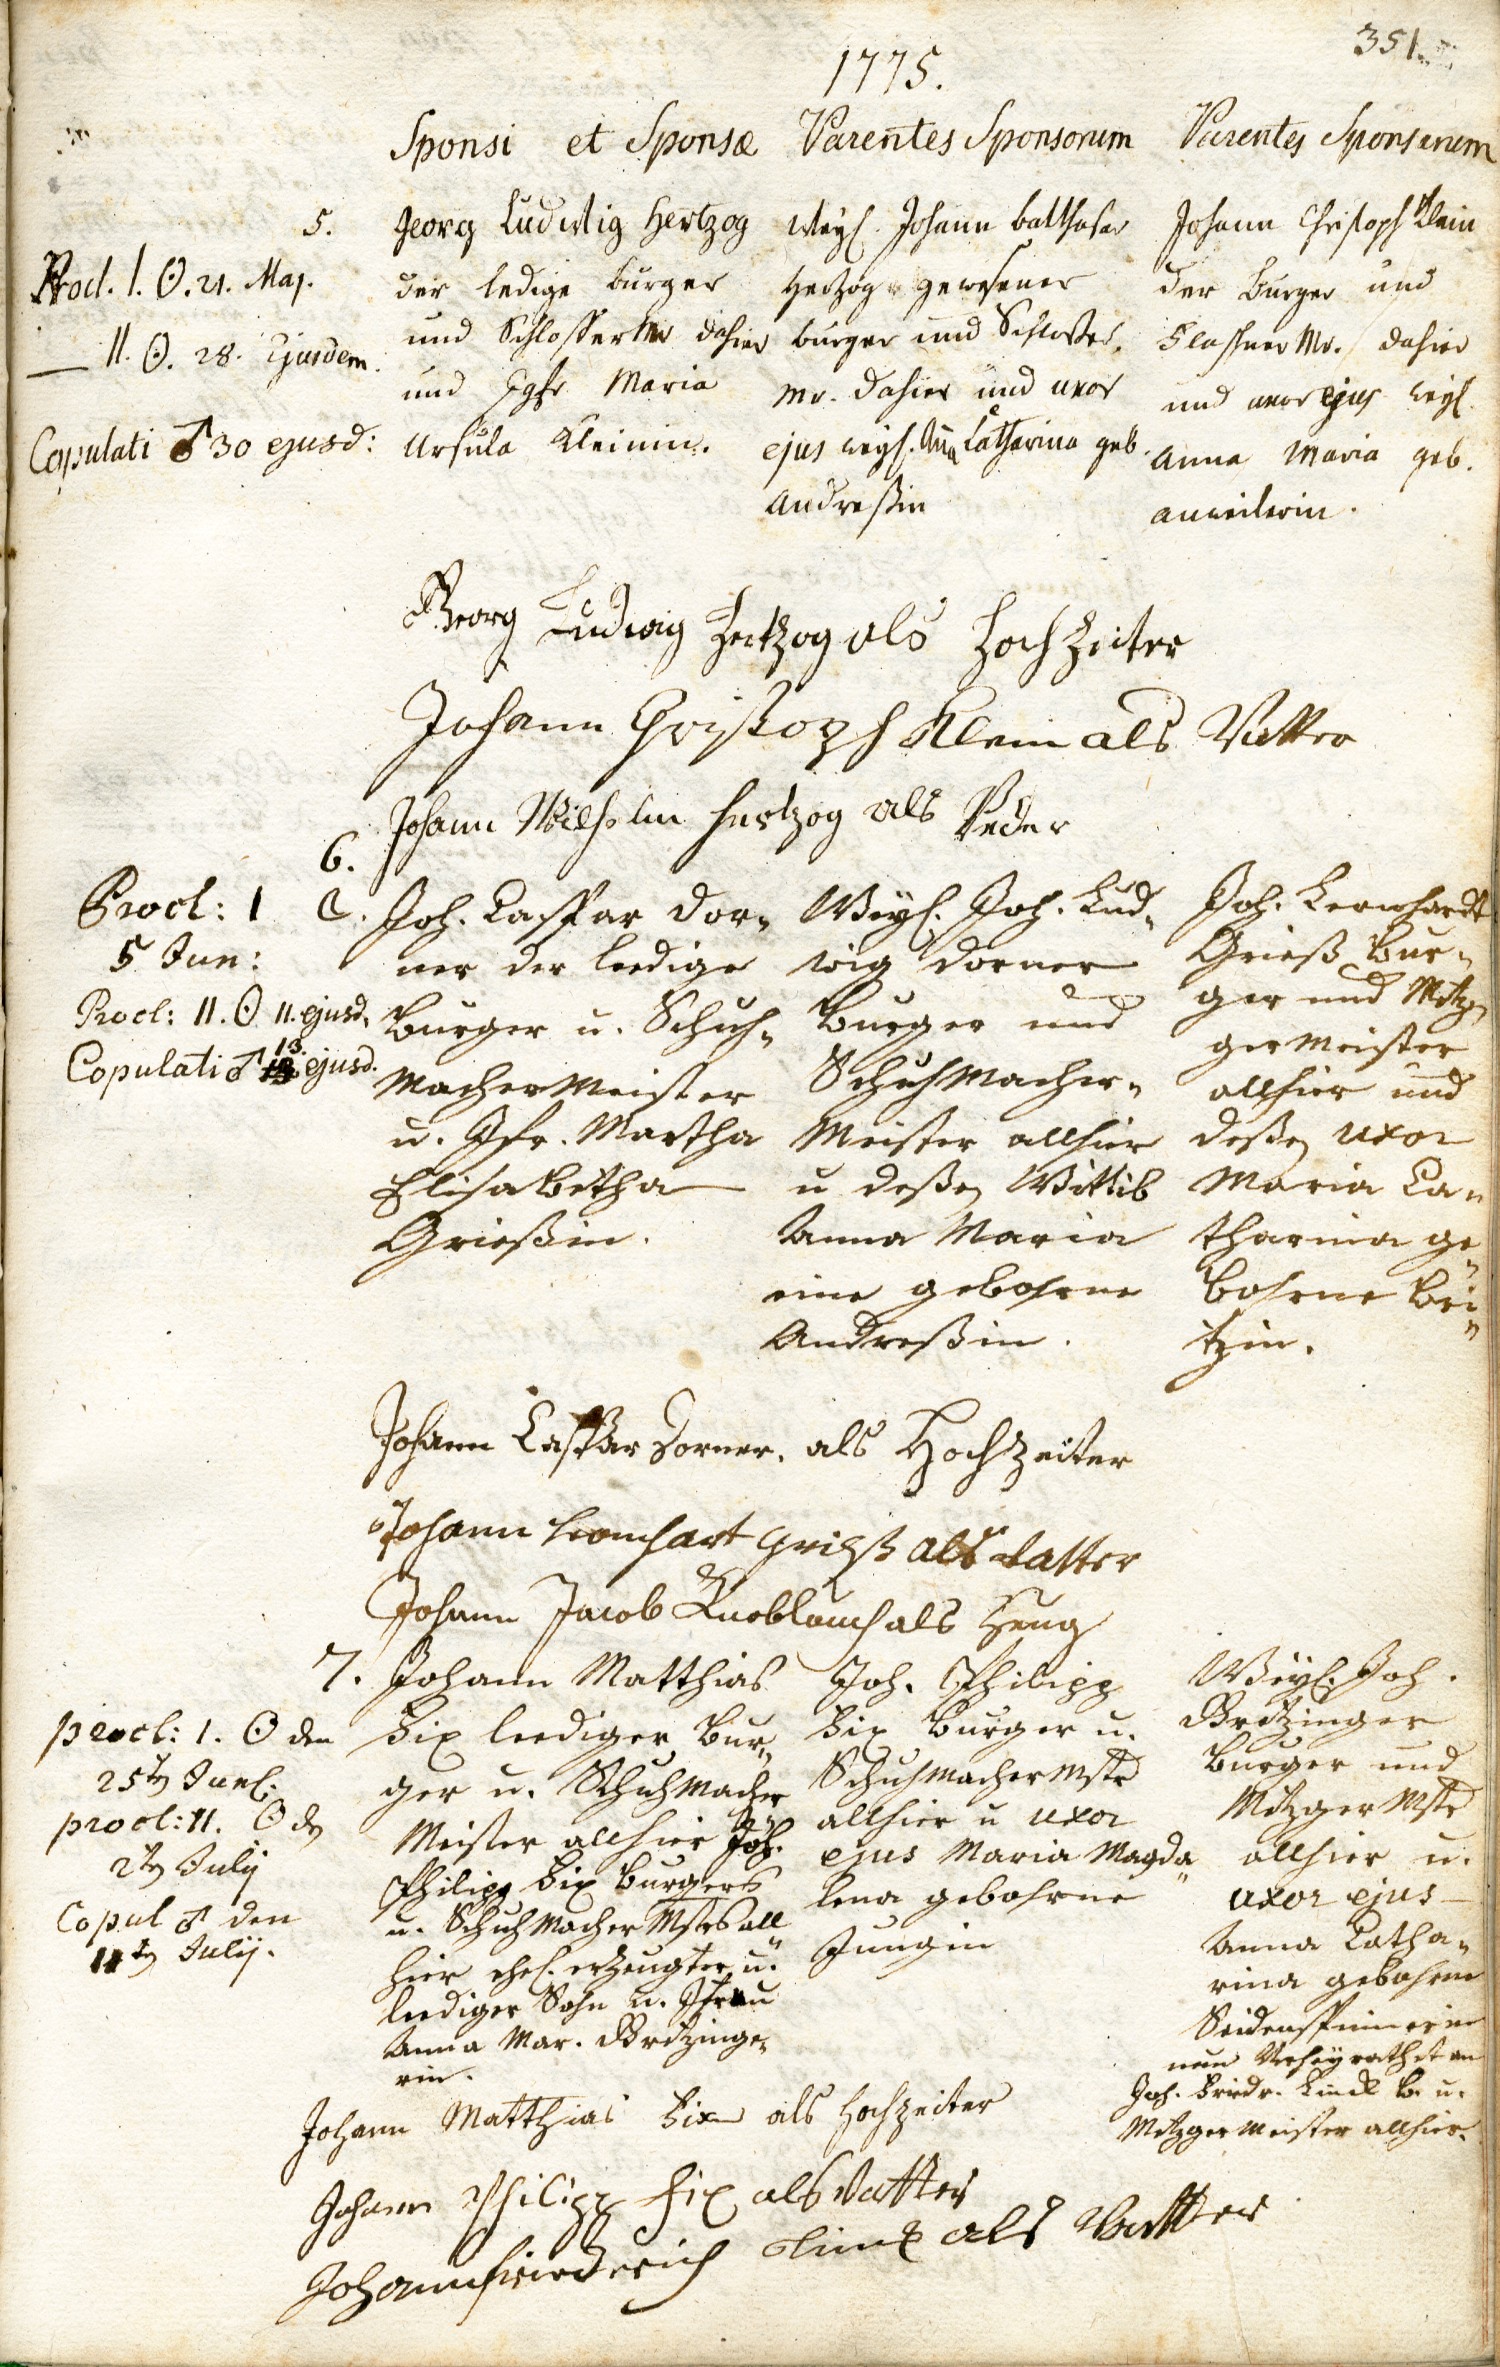 351.
1775.
Sponsi et Sponsæ
Parentes Sponsorum
Parentes Sponsarum
5.
Procl. I. ☉. 21. Maj.
— II. ☉. 28. Ejusdem.
Copulati ♂ 30 ejusd:
Georg Ludwig Hertzog
der ledige burger
und Schlosser Mr dahier
und Jgfr Maria
Ursula Kleinin.
Weyl. Johann balthasar
Hertzog gewesener
burger und Schlosser
Mr. dahier und uxor
ejus weyl. Ana Catharina geb.
Andreßin
Johann Christoph Klein
der Burger und
Flaschner Mr. dahier
und uxor ejus weyl.
Anna Maria geb.
anweilerin.
Georg Ludwig Hertzog als Hochzeiter
Johann Christoph Klein als Vatter
Johann Wilhelm Hertzog als Veder
6.
Procl: I ☾.
5 Jun:
Procl: II. ☉ 11. ejusd.
Copulati ♂ 13. ejusd.
Joh. Caspar Dor-
ner der leedige
Burger u. Schuh-
macher Meister
u. Jfr. Martha
Elisabetha
Grießin.
Weyl. Joh. Lud-
wig Dorner
Burger und
Schuhmacher-
Meister allhier
u deßen Wittib
Anna Maria
eine gebohrne
Andreßin.
Joh. Leonhardt
Grieß Bur-
ger und Metz-
ger Meister
allhier und
deßen uxor
Maria Ca-
tharina ge-
bohrne Bei-
tzin.
Johann Caspar Dorner. als Hochzeiter
Johann Leonhart Grieß als vatter
Johann Jacob Knoblauch als Zeug
7.
procl: I. ☉ den
25ten Junl.
procl: II. ☉ den
2ten Julij
Copul ♂ den
11ten Julij.
Johann Matthias
Fix leediger Bur-
ger u. Schuhmacher
Meister allhier Joh.
Philipp Fix Burgers
u. Schuhmacher Mstrs all-
hier ehel. erzeugter u.
leediger Sohn u. Jfrau
Anna Mar. Britzinge-
rin.
Joh. Philipp
Fix Burger u.
Schuhmacher Mstr
allhier u uxor
ejus Maria Magda-
lena gebohrne
Jungin
Weyl. Joh.
Britzinger
Burger und
Metzger Mstr
allhier u.
uxor ejus
Anna Catha-
rina gebohrne
Seidenspinnerin
nun Verheyrathet an
Joh. Fridr. Linck B. u.
Metzger Meister allhier.
Johann Matthias Fix als Hochzeiter
Johann Philipp Fix als Vatter
Johann Friederich Linck als Vatter